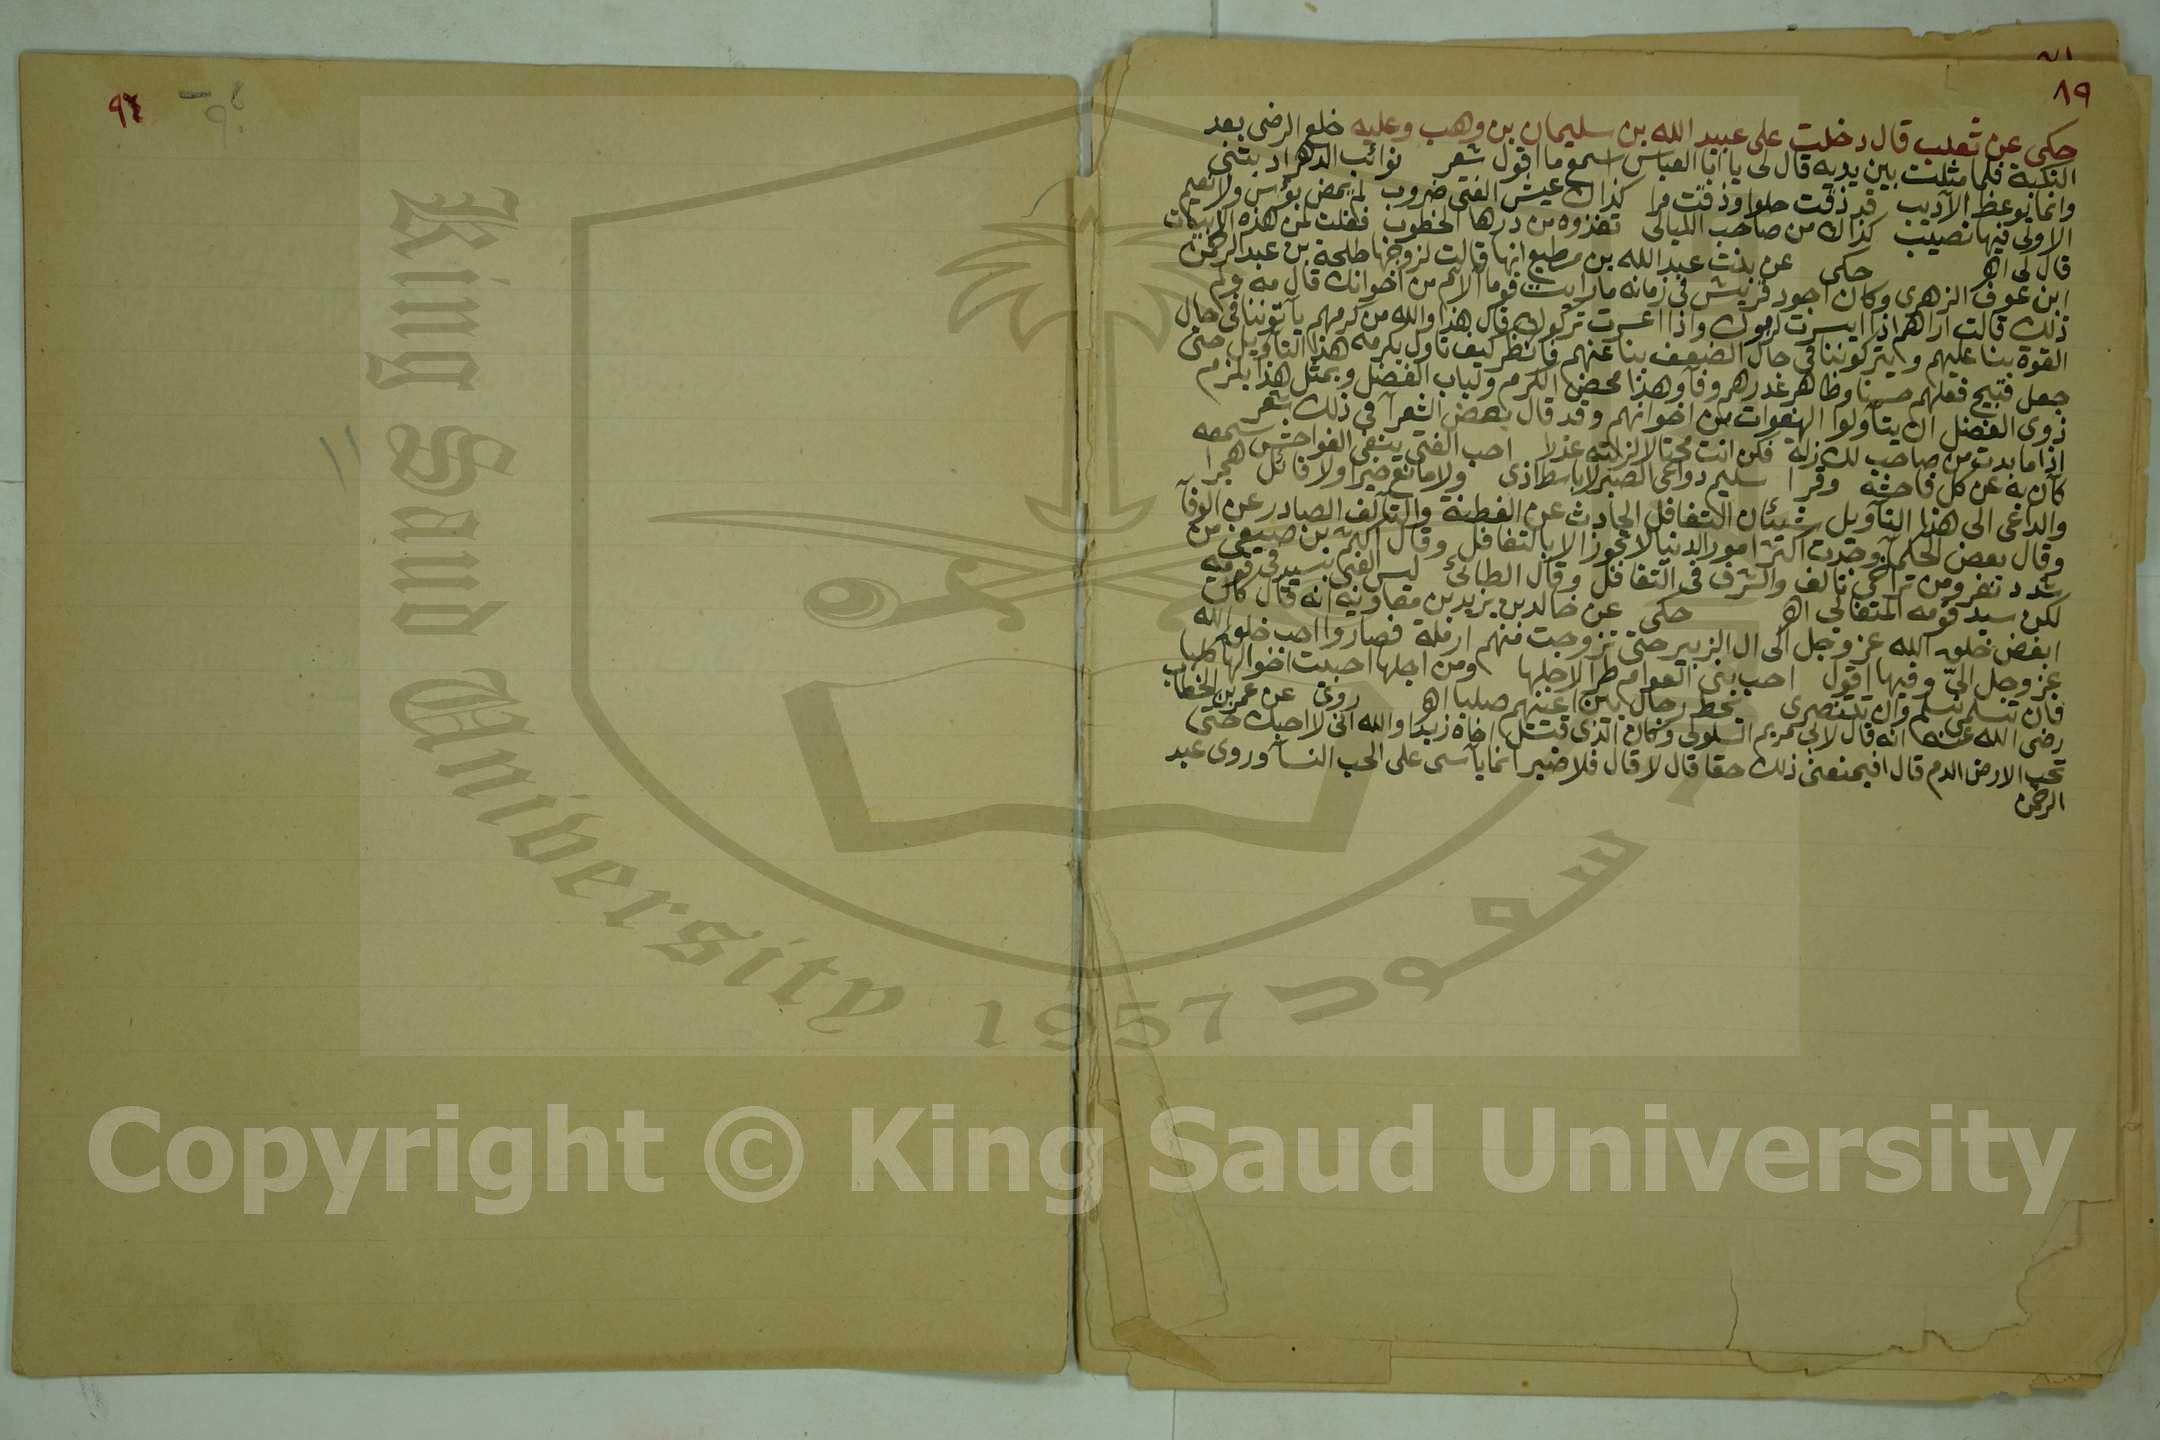 ٨٩
حكى عن ثعلب قال دخلت على عبيد الله بن سليمان بن وهب وعليه خلع الرضى بعد
النكبة فلما مثلت بين يديه قال لى يا ابا العباس اسمع ما اقول شعر نوائب الدهر ادبتنى
وانما يوعظ الاديب قد ذقت حلوا وذقت مرا كذاك عيش الفتى ضروب لم يمض بؤس ولا نعيم
الا ولى فيهما نصيب كذاك من صاحب الليالى تغذوه من درها الخطوب فقلت لمن هذه الابيات
قال لى اهـ حكى عن بنت عبد الله بن مطيع انها قالت لزوجها طلحة بن عبد الرحمن
ابن عوف الزهرى وكان اجود قريش فى زمانه ما رايت قوما ألأم من اخوانك قال مه ولم
ذلك قالت اراهم اذا ايسرت لزموك واذا اعسرت تركوك قال هذا والله من كرمهم يأتوننا فى حال
القوة بنا عليهم ويتركوننا فى حال الضعف بنا عنهم فانظر كيف تاول بكرمه هذا التأويل حتى
جعل قبيح فعلهم حسنا وظاهر غدرهم وفآ وهذا محض الكرم ولباب الفضل وبمثل هذا يلزم
ذوى الفضل ان يتأولوا الهفوات من اخوانهم وقد قال بعض الشعرآ فى ذلك شعر
اذا ما بدت من صاحب لك زلة فكن انت محتالا لزلته عذرا احب الفتى ينفى الفواحش سمعه
كأن به عن كل فاحشة وقرا سليم دواعى الصبر لا باسط اذى ولا مانع خيرا ولا قائل هجرا
والداعى الى هذا التأويل شيئان التغافل الحادث عن الفطنة والتآلف الصادر عن الوفآ
وقال بعض الحكمآ وجدت اكثر امور الدنيا لا تجوز الا بالتغافل وقال اكثم بن صيفى من
شدد نفر ومن تراخى تالف والشرف فى التغافل وقال الطائى ليس الغبى بسيد فى قومه
لكن سيد قومه المتغابى اهـ حكى عن خالد بن يزيد بن معاوية انه قال كان
ابغض خلق الله عز وجل الى ال الزبير حتى تزوجت منهم ارملة فصاروا احب خلق الله
عز وجل الىّ وفيها اقول احب بنى العوام طرا لاجلها ومن اجلها احببت اخوالها كلبا
فان تسلمى نسلم وان تتنصرى يخط رجال بين اعينهم صلبا اهـ روى عن عمر بن الخطاب
رضى الله عنه انه قال لابى مريم السلولى وكان الذى قتل اخاه زيدا والله انى لا احبك حتى
تحب الارض الدم قال افيمنعنى ذلك حقا قال لا قال فلا ضير انما يآسى على الحب النسآ وروى عبد
الرحمن
٩٤
٩٠
King Saud University
1957
سعود
Copyright © King Saud University